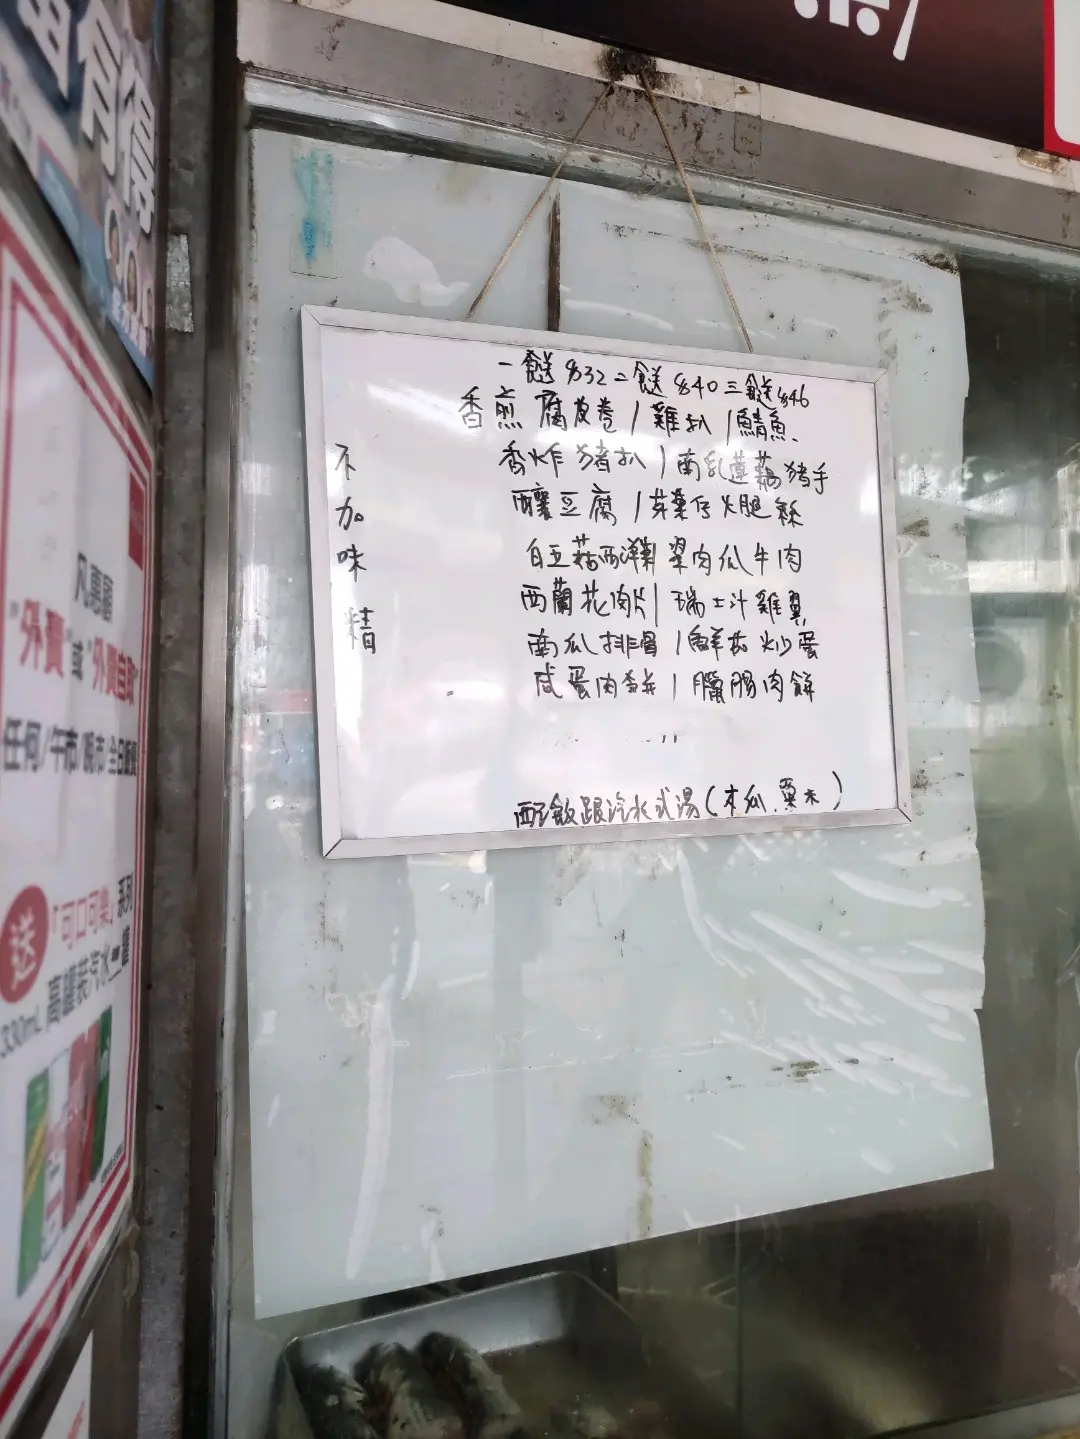 有得
凡惠顧
"外賣"或"外賣自取"
任何/午市/晚市/全日飯餐
送
「可口可樂」系列
330mL 高罐裝汽水一罐
一餸$32二餸$40三餸$46
香煎腐皮卷/雞扒/鯖魚.
香炸豬扒/南乳蓮藕豬手
釀豆腐/菜仔火腿絲
白玉菇西洋 翠肉瓜牛肉
西蘭花肉片/瑞士汁雞翼
南瓜排骨/鮮茄炒蛋
咸蛋肉餅/臘腸肉餅
配飯跟汽水或湯(木瓜.粟米)
不加味精